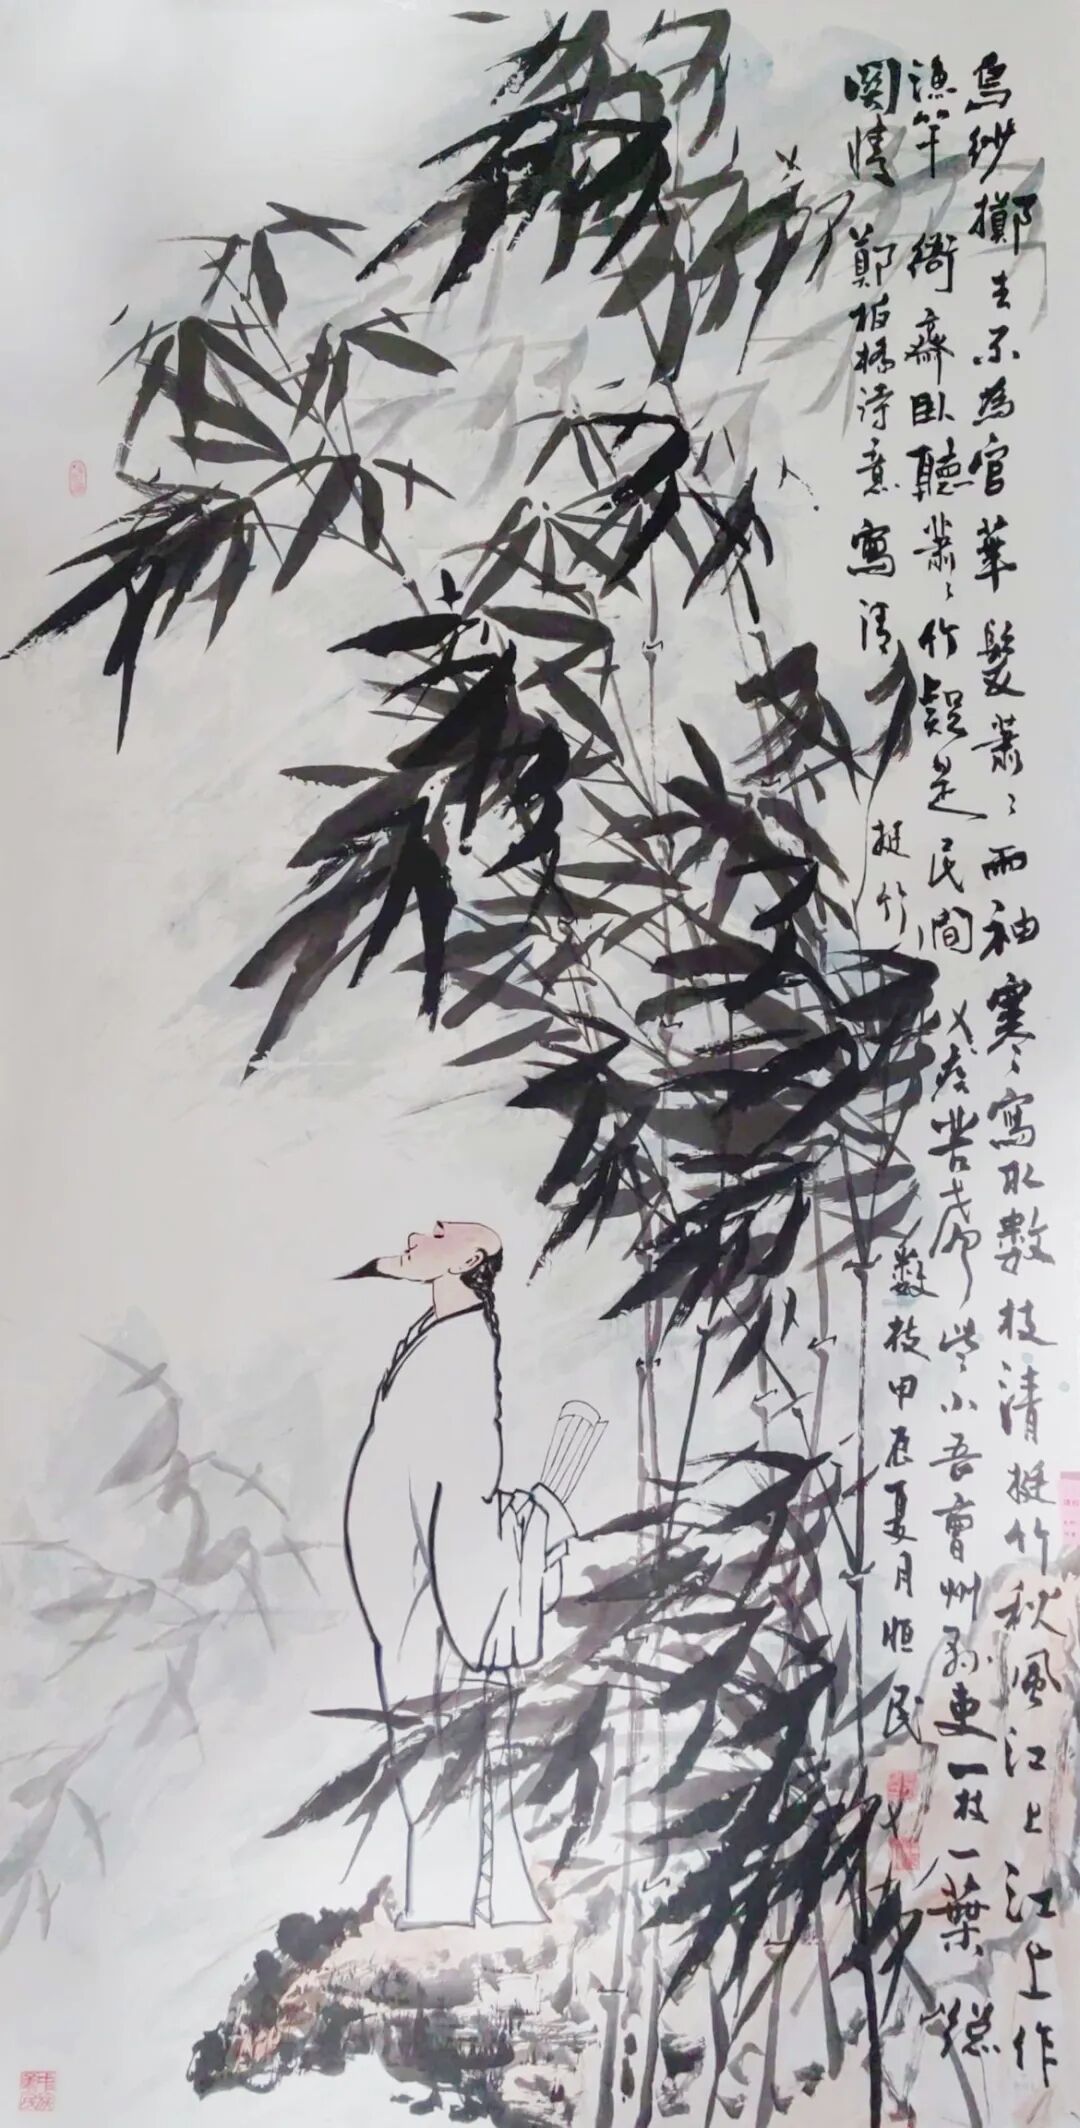 烏紗擲去不為官華髮蕭〻兩袖寒〻寫取數枝清挺竹秋風江上江上作
漁竿衙齋臥聽蕭〻竹疑是民間疾苦聲些小吾曹州縣吏一枝一葉總
関情鄭板橋詩意寫清挺竹數枝甲辰夏月恒民